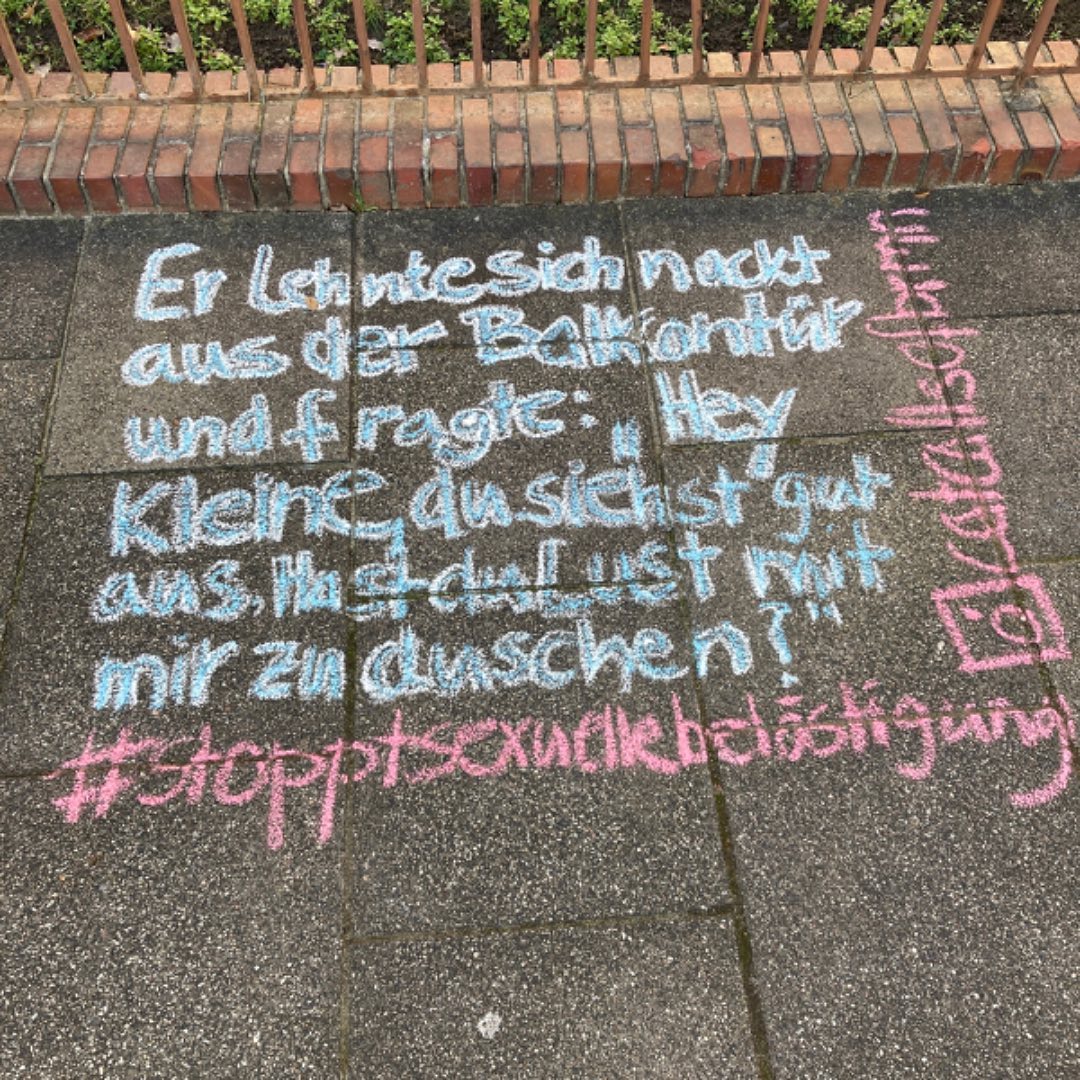 Er lehnte sich nackt
aus der Balkontür
und fragte: „Hey
Kleine, du siehst gut
aus. Hast du Lust mit
mir zu duschen?"
#stopptsexuellebelästigung
catcallsofbrmn